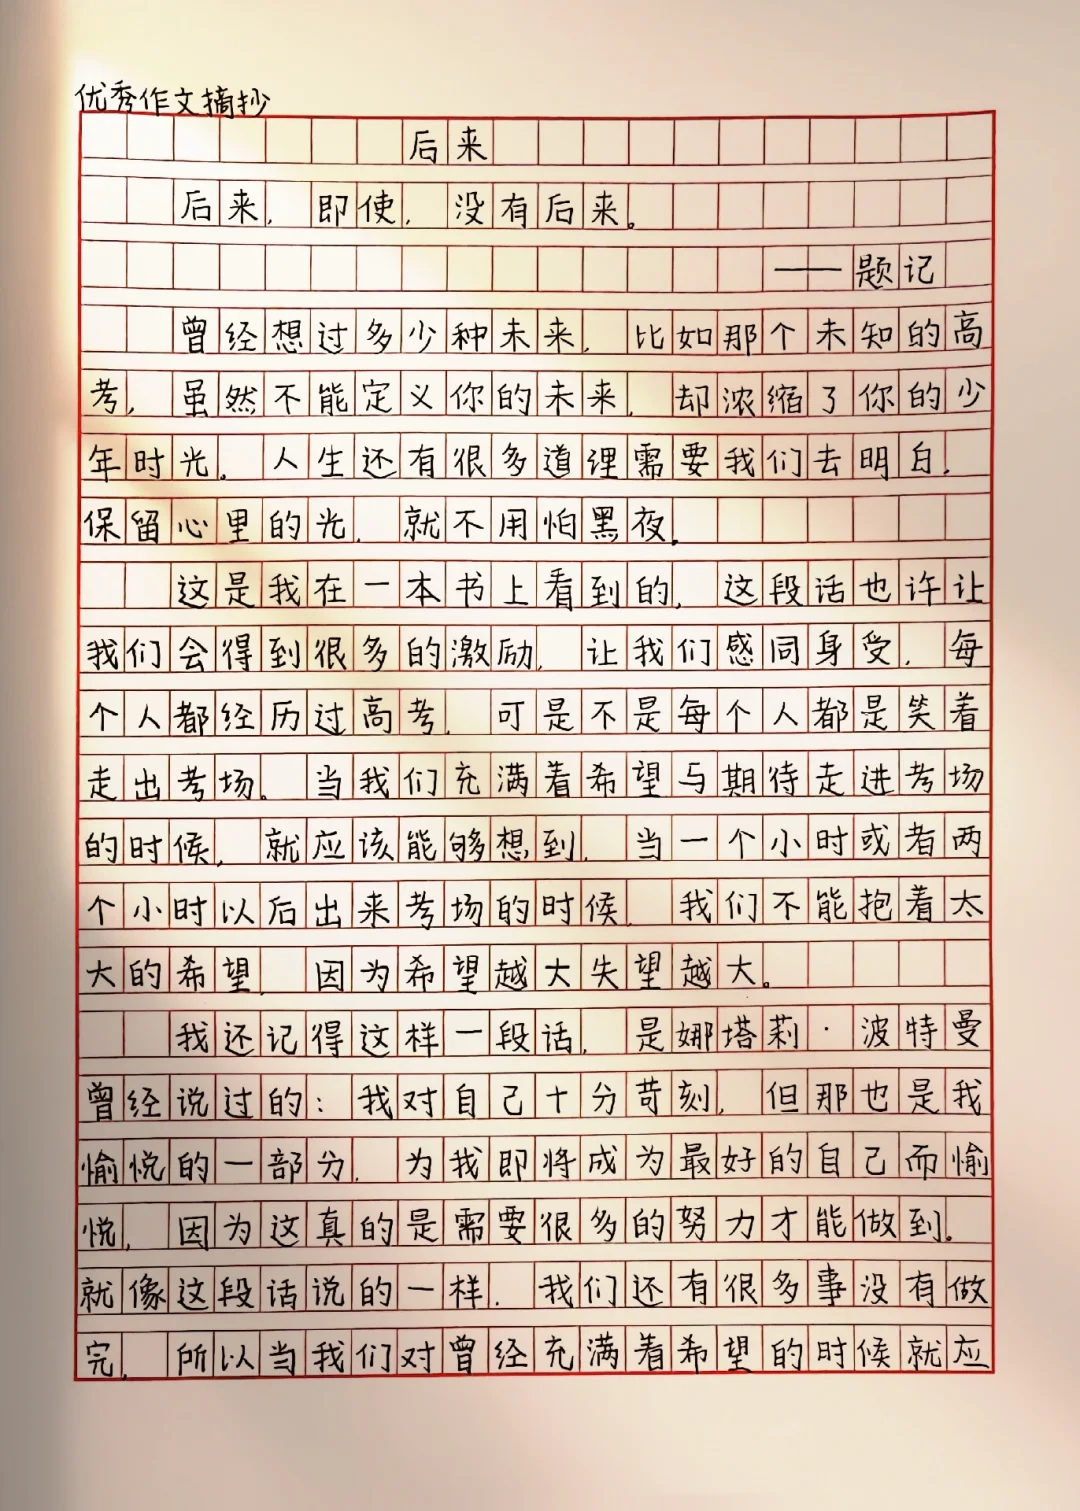 优秀作文摘抄
后来
后来，即使，没有后来。
——题记
曾经想过多少种未来，比如那个未知的高
考，虽然不能定义你的未来，却浓缩了你的少
年时光。人生还有很多道理需要我们去明白，
保留心里的光，就不用怕黑夜。
这是我在一本书上看到的，这段话也许让
我们会得到很多的激励，让我们感同身受，每
个人都经历过高考，可是不是每个人都是笑着
走出考场。当我们充满着希望与期待走进考场
的时候，就应该能够想到，当一个小时或者两
个小时以后出来考场的时候，我们不能抱着太
大的希望，因为希望越大失望越大。
我还记得这样一段话，是娜塔莉·波特曼
曾经说过的：我对自己十分苛刻，但那也是我
愉悦的一部分，为我即将成为最好的自己而愉
悦，因为这真的是需要很多的努力才能做到。
就像这段话说的一样，我们还有很多事没有做
完，所以当我们对曾经充满着希望的时候就应